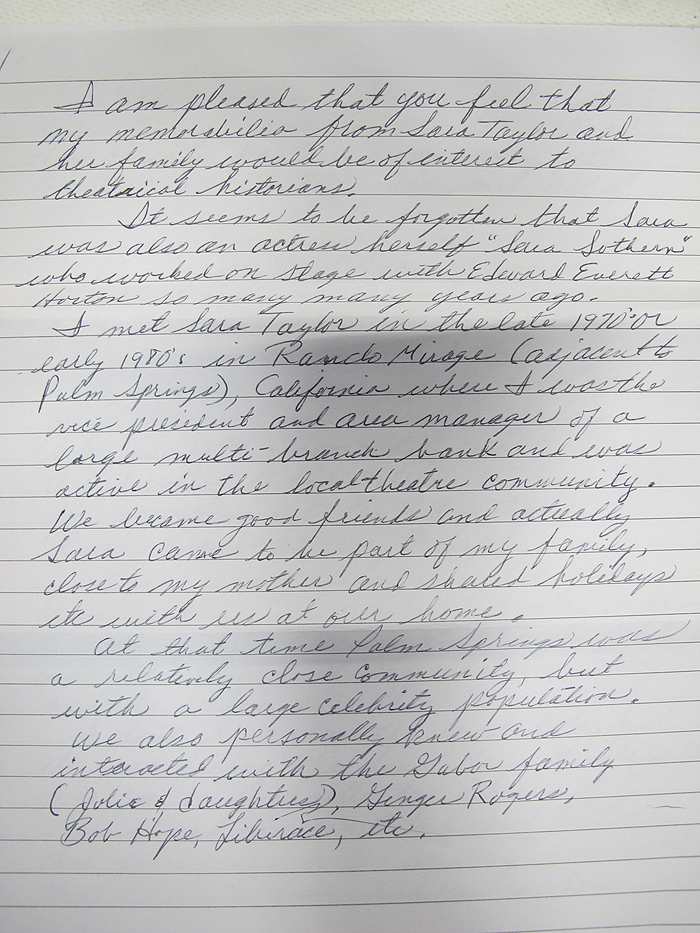 I am pleased that you feel that
my memorabilia from Sara Taylor and
her family would be of interest to
theatrical historians.
It seems to be forgotten that Sara
was also an actress herself "Sara Sothern"
who worked on stage with Edward Everett
Horton so many many years ago.
I met Sara Taylor in the late 1970's or
early 1980's in Rancho Mirage (adjacent to
Palm Springs), California where I was the
vice president and area manager of a
large multi-branch bank and was
active in the local theatre community.
We became good friends and actually
Sara came to be part of my family,
close to my mother and shared holidays
etc with us at our home.
At that time Palm Springs was
a relatively close community, but
with a large celebrity population.
We also personally knew and
interacted with the Gabor family
(Jolie & daughters), Ginger Rogers,
Bob Hope, Liberace, etc.